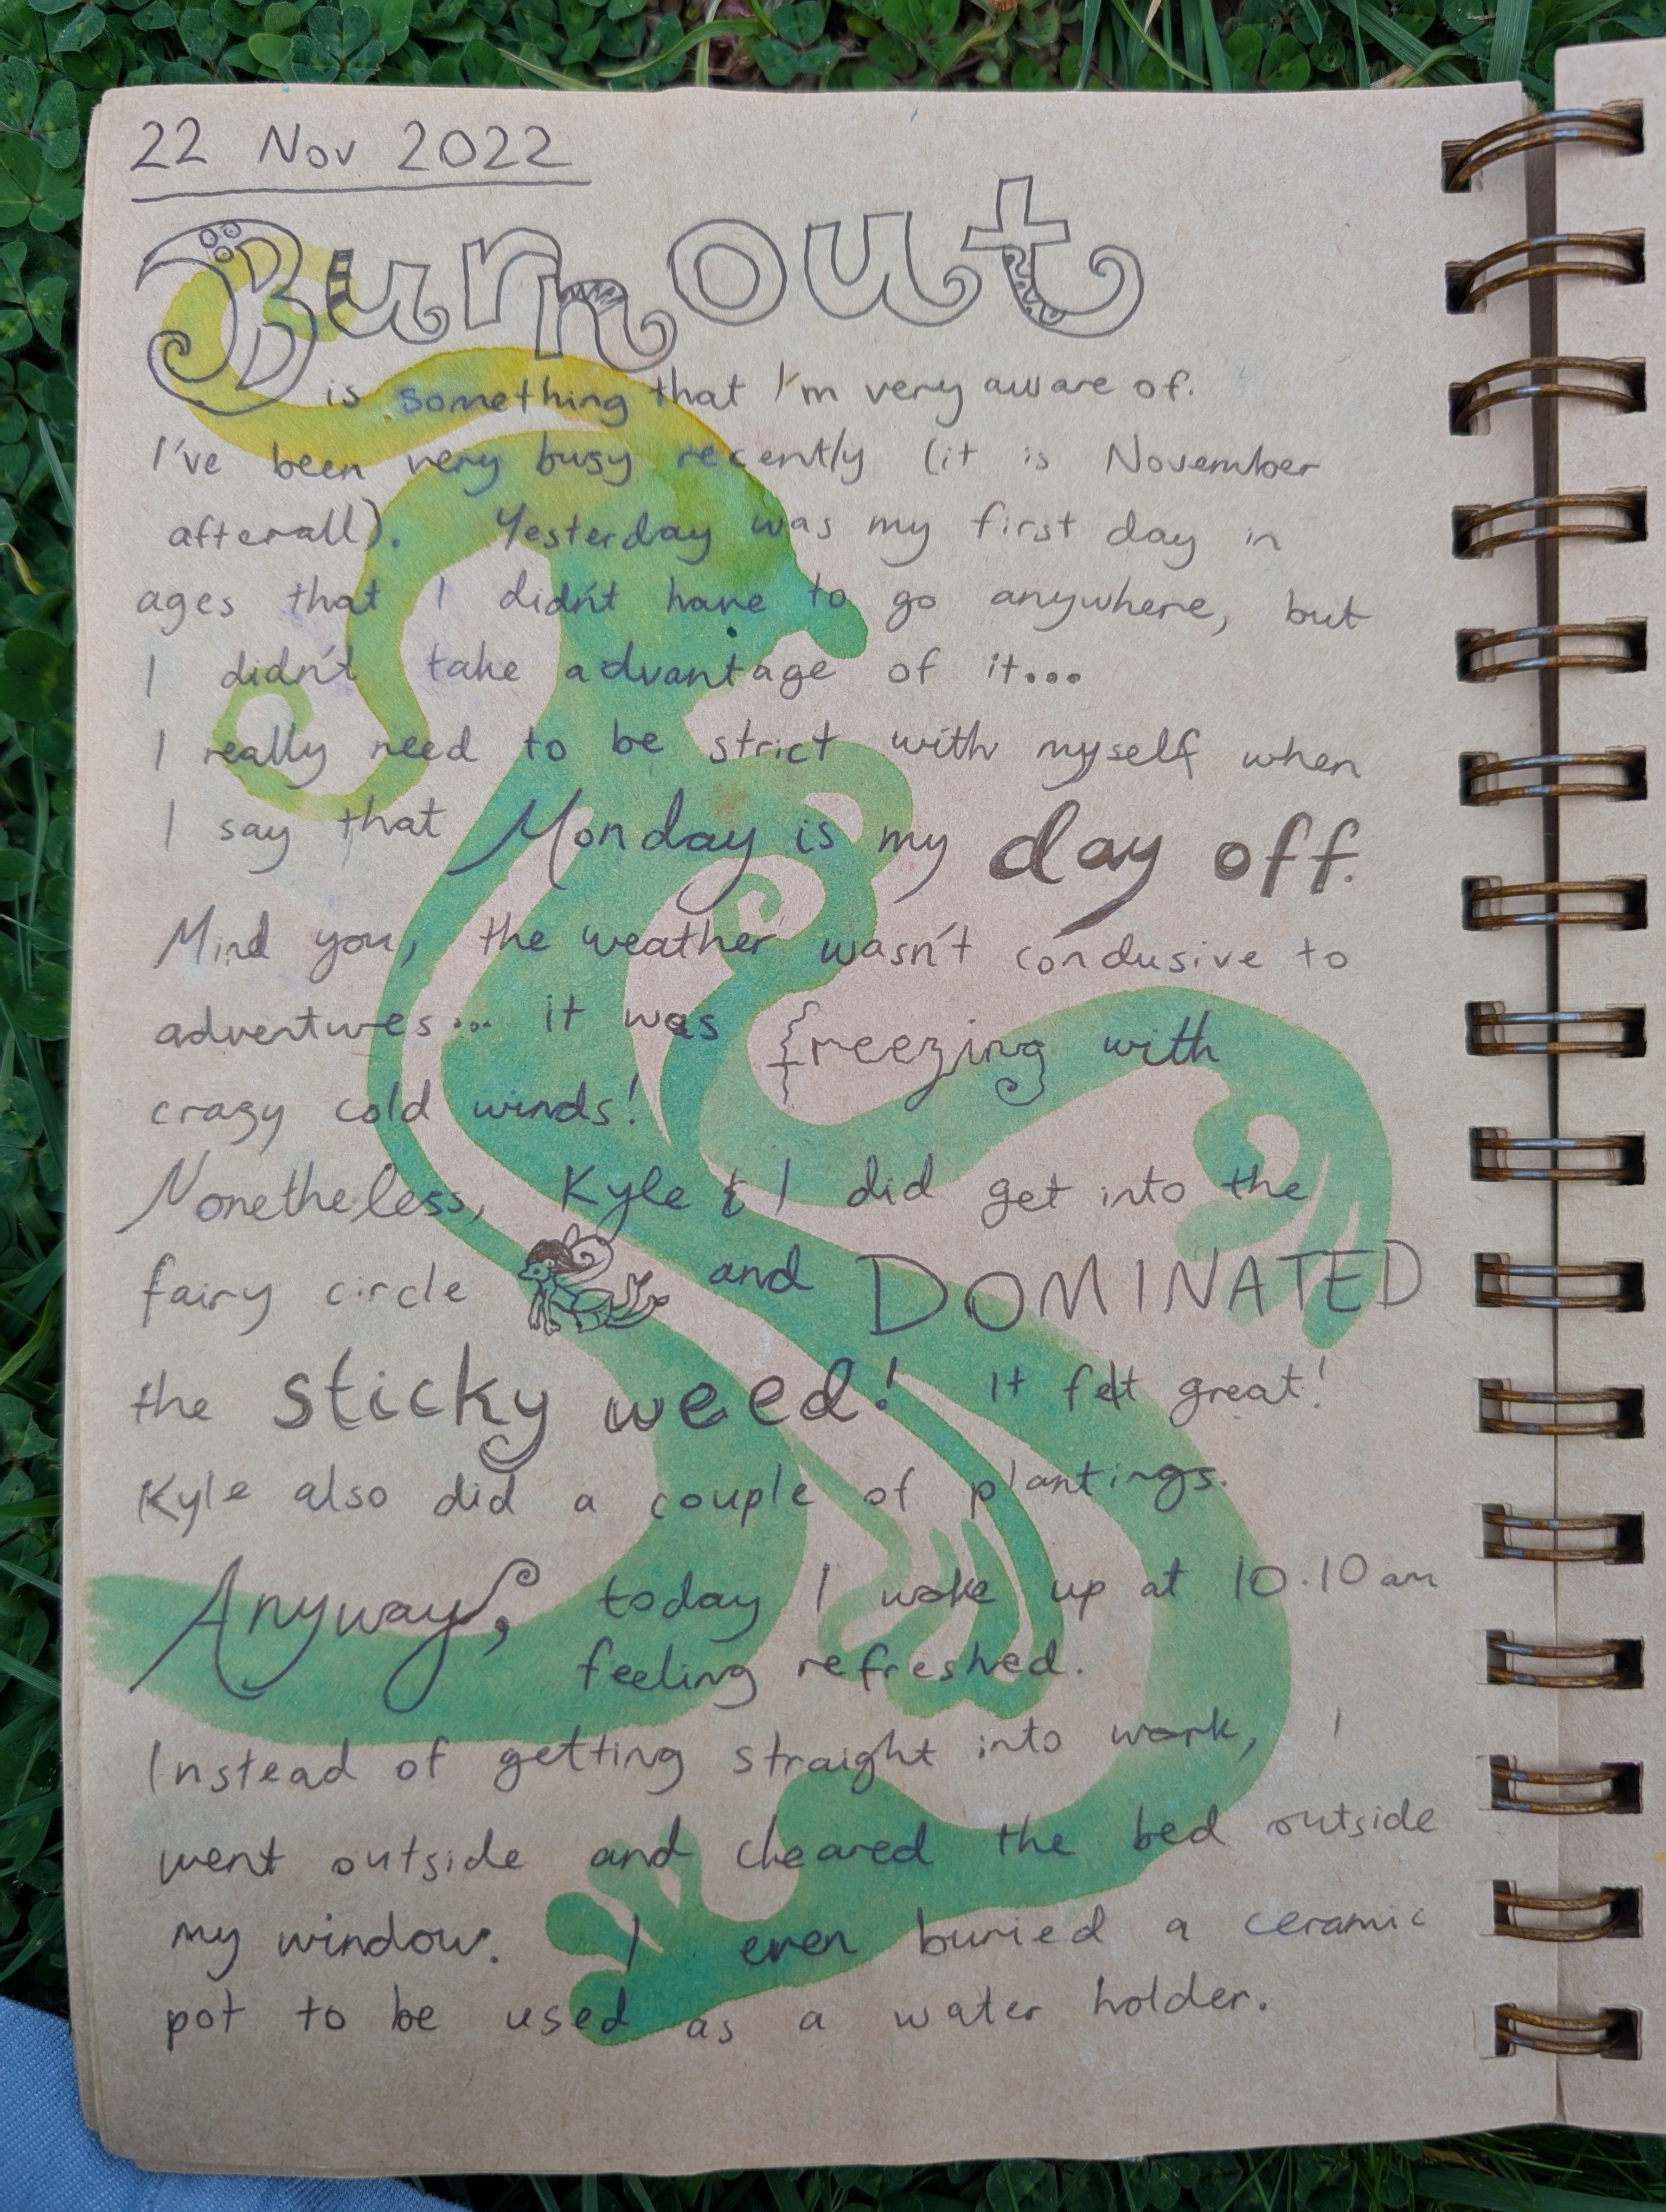 22 Nov 2022
Burnout
is something that I'm very aware of.
I've been very busy recently (it is November
afterall). Yesterday was my first day in
ages that I didn't have to go anywhere, but
I didn't take advantage of it...
I really need to be strict with myself when
I say that Monday is my day off.
Mind you, the weather wasn't condusive to
adventures... it was freezing with
crazy cold winds!
Nonetheless, Kyle & I did get into the
fairy circle and DOMINATED
the sticky weed! It felt great!
Kyle also did a couple of plantings.
Anyway, today I woke up at 10.10am
feeling refreshed.
Instead of getting straight into work, I
went outside and cleared the bed outside
my window. I even buried a ceramic
pot to be used as a water holder.